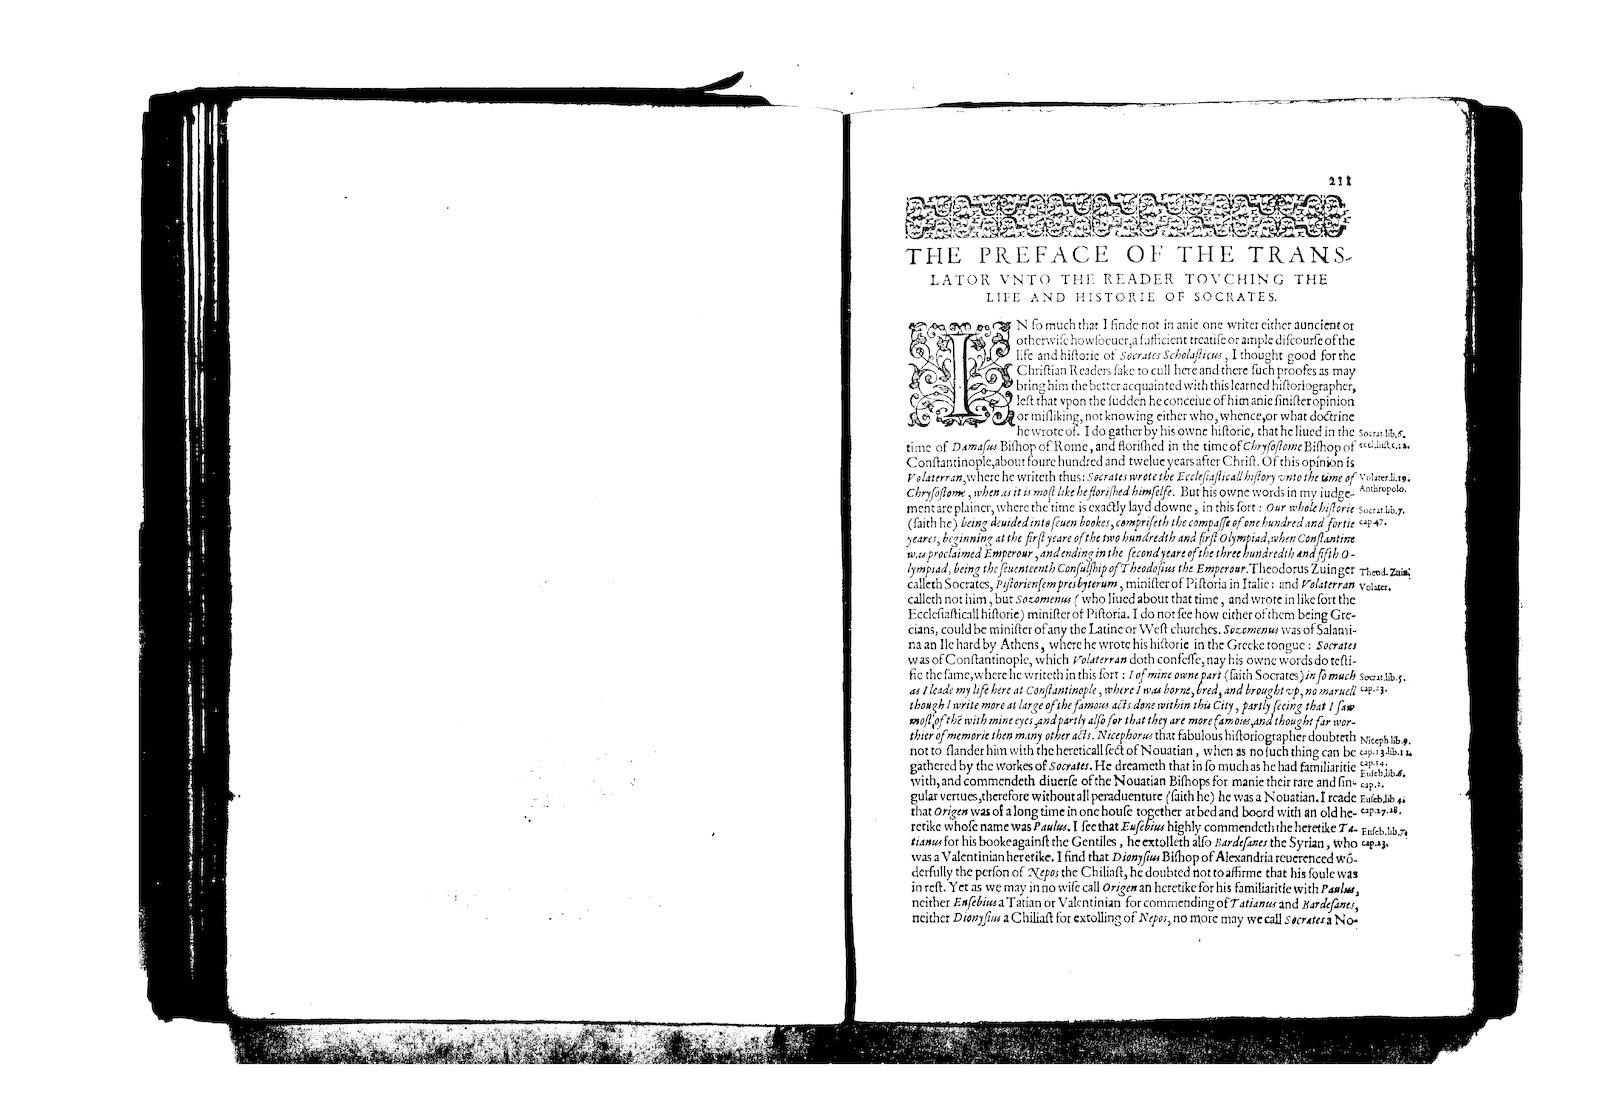 211
THE PREFACE OF THE TRANS-
LATOR VNTO THE READER TOVCHING THE
LIFE AND HISTORIE OF SOCRATES.
IN ſo much that I finde not in anie one writer either auncient or
otherwiſe howſoeuer,a ſufficient treatiſe or ample diſcourſe of the
life and hiſtorie of Socrates Scholaſticus, I thought good for the
Chriſtian Readers ſake to cull here and there ſuch proofes as may
bring him the better acquainted with this learned hiſtoriographer,
leſt that vpon the ſudden he conceiue of him anie ſiniſter opinion
or miſliking, not knowing either who, whence,or what doctrine
he wrote of. I do gather by his owne hiſtorie, that he liued in the Socrat.lib.6.
time of Damaſus Biſhop of Rome, and floriſhed in the time of Chryſoſtome Biſhop of eccl.hiſt.c.22.
Conſtantinople,about foure hundred and twelue years after Chriſt. Of this opinion is
Volaterran,where he writeth thus: Socrates wrote the Eccleſiaſticall hiſtory vnto the time of Volater.li.19.
Chryſoſtome, when as it is moſt like he floriſhed himſelfe. But his owne words in my iudge- Anthropolo.
ment are plainer, where the time is exactly layd downe, in this ſort: Our whole hiſtorie Socrat.lib.7.
(ſaith he) being deuided into ſeuen bookes, compriſeth the compaſſe of one hundred and fortie cap.47.
yeares, beginning at the firſt yeare of the two hundredth and firſt Olympiad,when Conſtantine
was proclaimed Emperour, and ending in the ſecond yeare of the three hundredth and fifth O-
lympiad, being the ſeuenteenth Conſulſhip of Theodoſius the Emperour. Theodorus Zuinger Theod. Zuin.
calleth Socrates, Piſtorienſem presbyterum, miniſter of Piſtoria in Italie: and Volaterran Volater.
calleth not him, but Sozomenus (who liued about that time, and wrote in like ſort the
Eccleſiaſticall hiſtorie) miniſter of Piſtoria. I do not ſee how either of them being Gre-
cians, could be miniſter of any the Latine or Weſt churches. Sozomenus was of Salami-
na an Ile hard by Athens, where he wrote his hiſtorie in the Greeke tongue: Socrates
was of Conſtantinople, which Volaterran doth confeſſe, nay his owne words do teſti-
fie the ſame,where he writeth in this ſort: I of mine owne part (ſaith Socrates) in ſo much Socrat.lib.5.
as I leade my life here at Conſtantinople, where I was borne, bred, and brought vp, no maruell cap.23.
though I write more at large of the famous acts done within this City, partly ſeeing that I ſaw
moſt of thē with mine eyes,and partly alſo for that they are more famous,and thought far wor-
thier of memorie then many other acts. Nicephorus that fabulous hiſtoriographer doubteth Niceph.lib.9.
not to ſlander him with the hereticall ſect of Nouatian, when as no ſuch thing can be cap.13.lib.11.
gathered by the workes of Socrates. He dreameth that in ſo much as he had familiaritie cap.14.
with, and commendeth diuerſe of the Nouatian Biſhops for manie their rare and ſin- Euſeb.lib.6. cap.2.
gular vertues,therefore without all peraduenture (ſaith he) he was a Nouatian. I reade Euſeb.lib 4.
that Origen was of a long time in one houſe together at bed and boord with an old he- cap.27.28.
retike whoſe name was Paulus. I ſee that Euſebius highly commendeth the heretike Ta- Euſeb.lib.7.
tianus for his booke againſt the Gentiles, he extolleth alſo Bardeſanes the Syrian, who cap.23.
was a Valentinian heretike. I find that Dionyſius Biſhop of Alexandria reuerenced wō-
derfully the perſon of Nepos the Chiliaſt, he doubted not to affirme that his ſoule was
in reſt. Yet as we may in no wiſe call Origen an heretike for his familiaritie with Paulus,
neither Euſebius a Tatian or Valentinian for commending of Tatianus and Bardeſanes,
neither Dionyſius a Chiliaſt for extolling of Nepos, no more may we call Socrates a No-